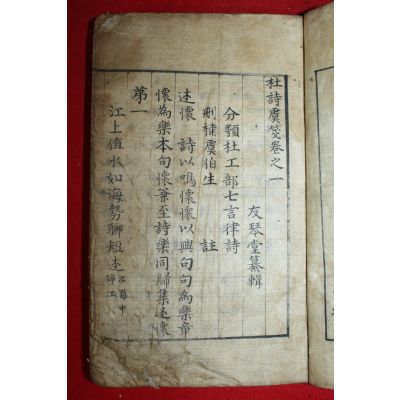 杜詩虞箋卷之一
友琴堂纂輯
分類杜工部七言律詩
刪補虞伯生 註
述懷 詩以鳴懷懷以興句句為樂章
懷為樂本句懷兼至詩樂同歸集述懷
第一
江上值水如海勢聊短述